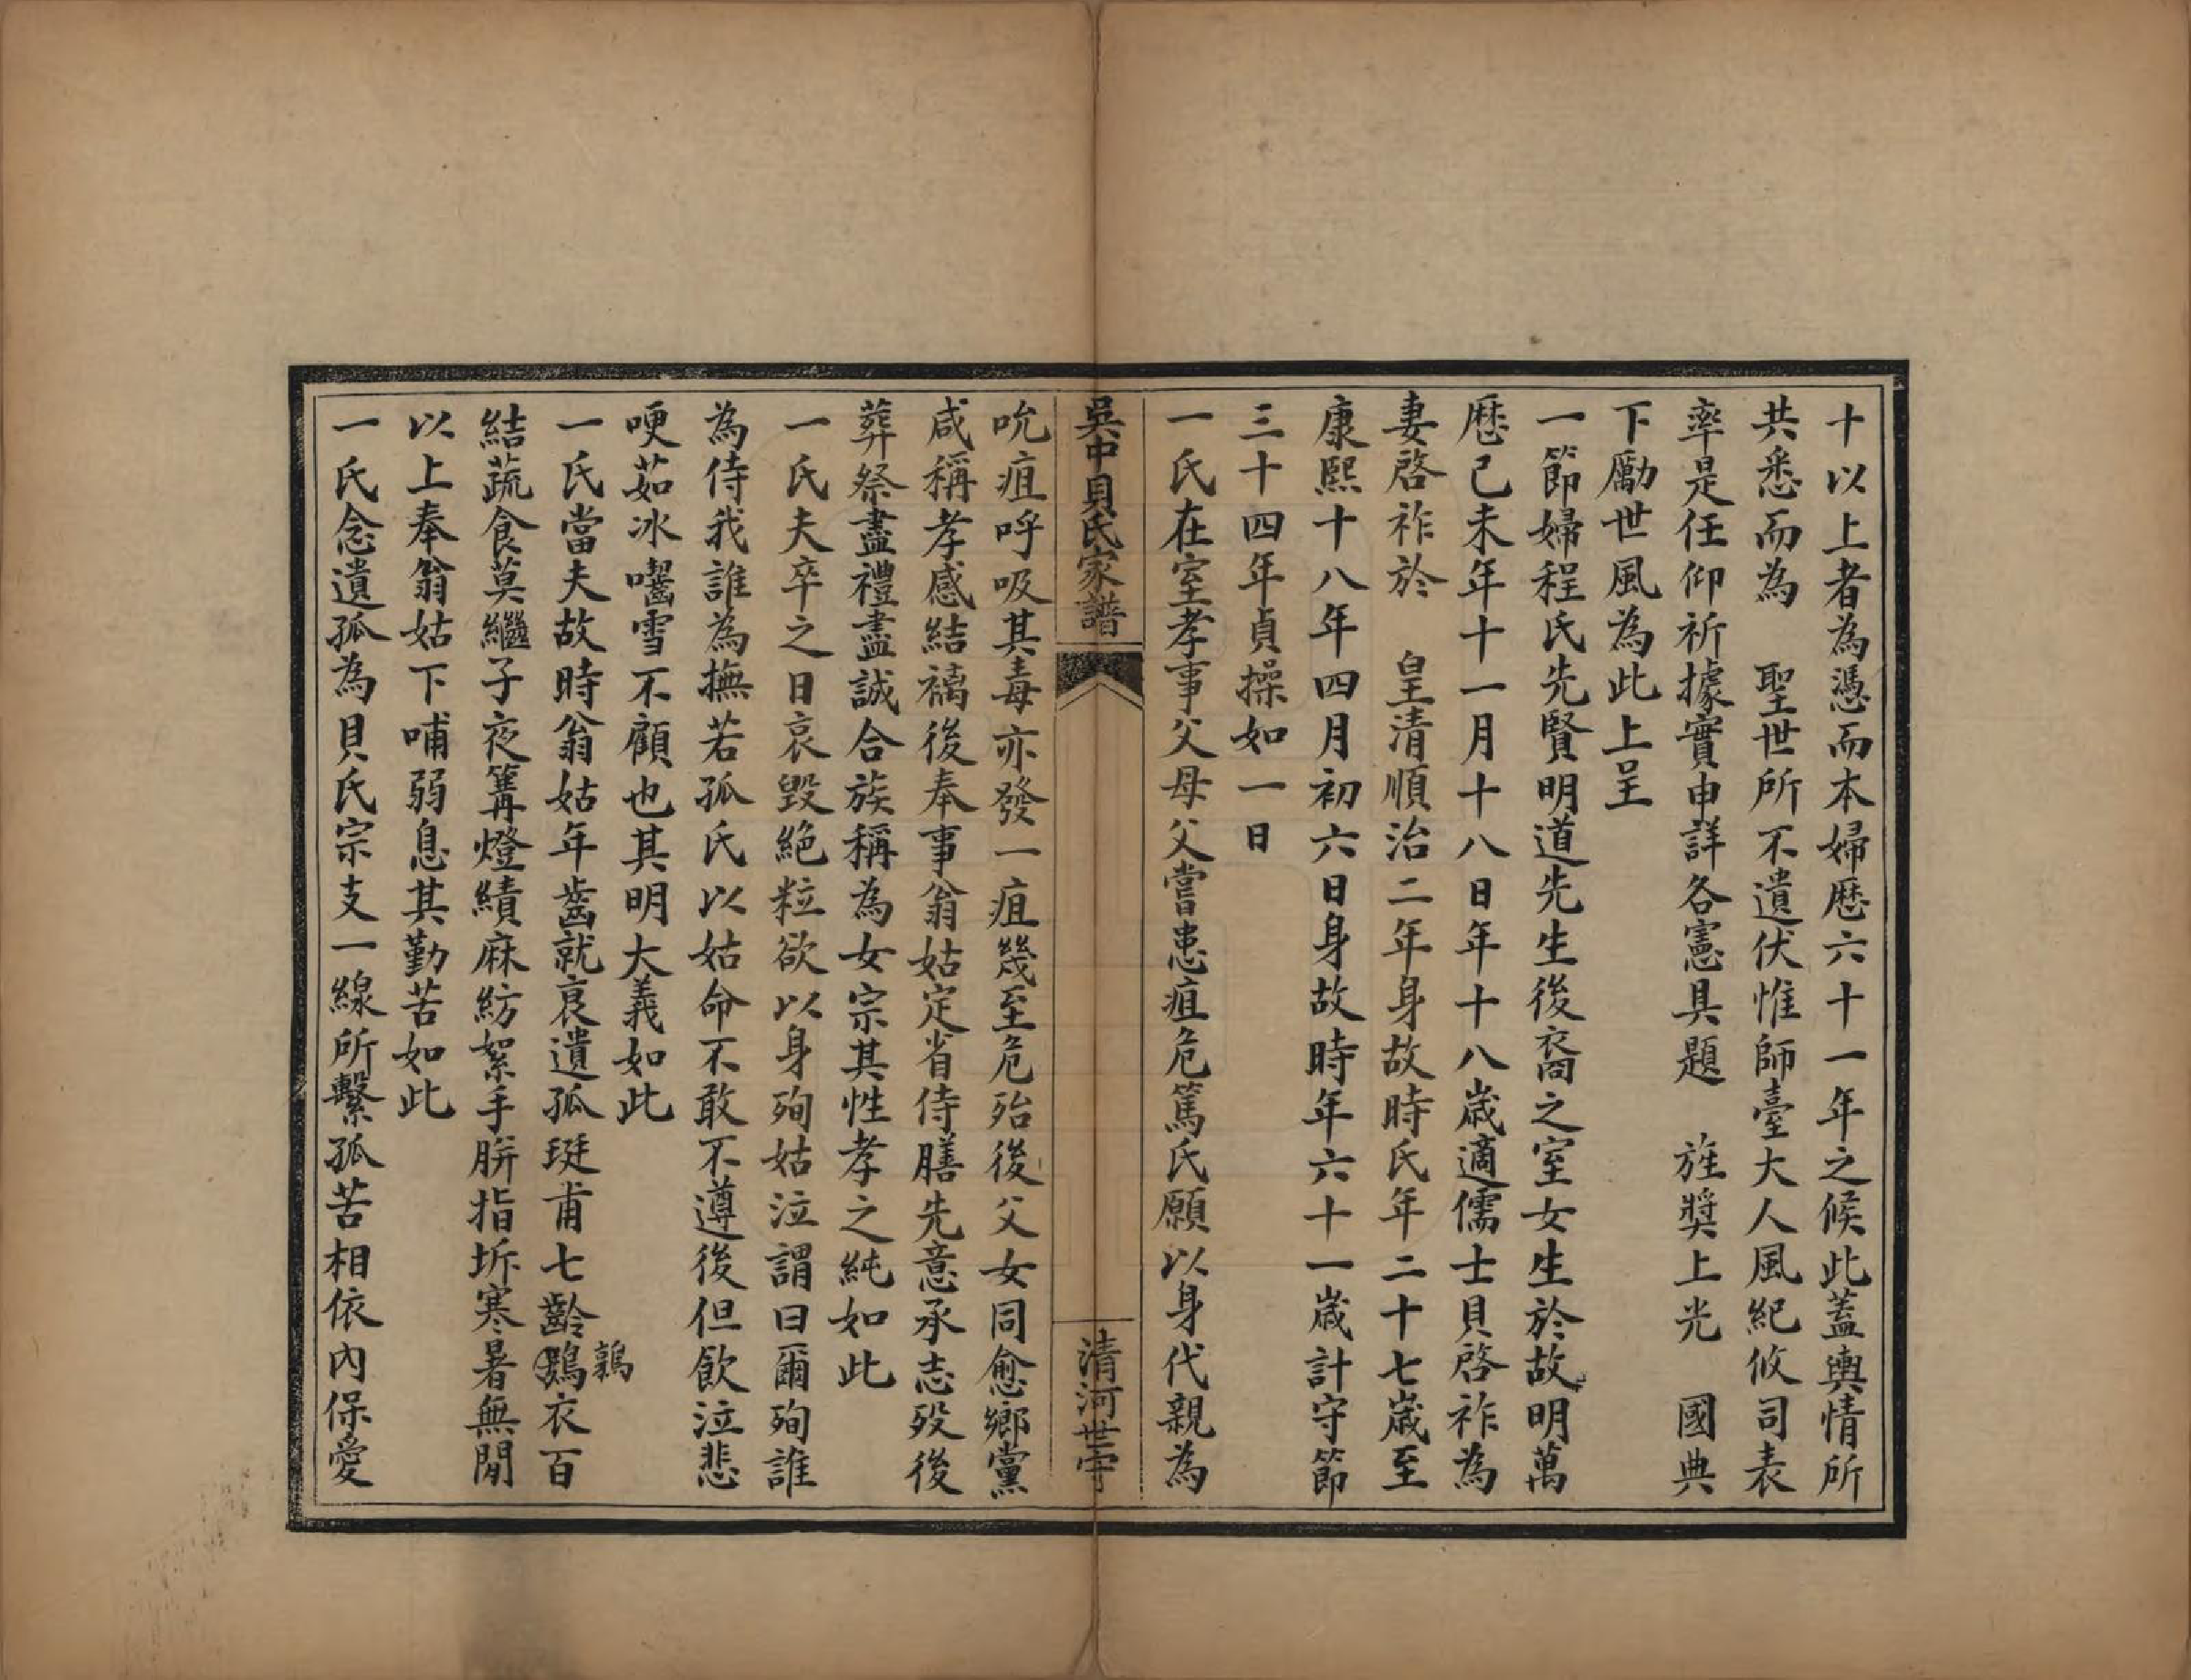 十以上者為憑而本婦歷六十一年之候此蓋輿情所
共悉而為　聖世所不遺伏惟師臺大人風紀攸司表
率是任仰祈據實申詳各憲具題　旌獎上光　國典
下勵世風為此上呈
一節婦程氏先賢明道先生後裔之室女生於故明萬
歷己未年十一月十八日年十八歲適儒士貝啓祚為
妻啓祚於　皇清順治二年身故時氏年二十七歲至
康熙十八年四月初六日身故時年六十一歲計守節
三十四年貞操如一日
一氏在室孝事父母父嘗患疽危篤氏願以身代親為
吳中貝氏家譜
清河世守
吮疽呼吸其毒亦發一疽幾至危殆後父女同愈鄉黨
咸稱孝感結褵後奉事翁姑定省侍膳先意承志歿後
葬祭盡禮盡誠合族稱為女宗其性孝之純如此
一氏夫卒之日哀毀絕粒欲以身殉姑泣謂曰爾殉誰
為侍我誰為撫若孤氏以姑命不敢不遵後但飲泣悲
哽茹冰囓雪不顧也其明大義如此
一氏當夫故時翁姑年齒就衰遺孤珽甫七齡鶉衣百
鶉
結蔬食莫繼子夜篝燈績麻紡絮手胼指坼寒暑無間
以上奉翁姑下哺弱息其勤苦如此
一氏念遺孤為貝氏宗支一線所繫孤苦相依內保愛